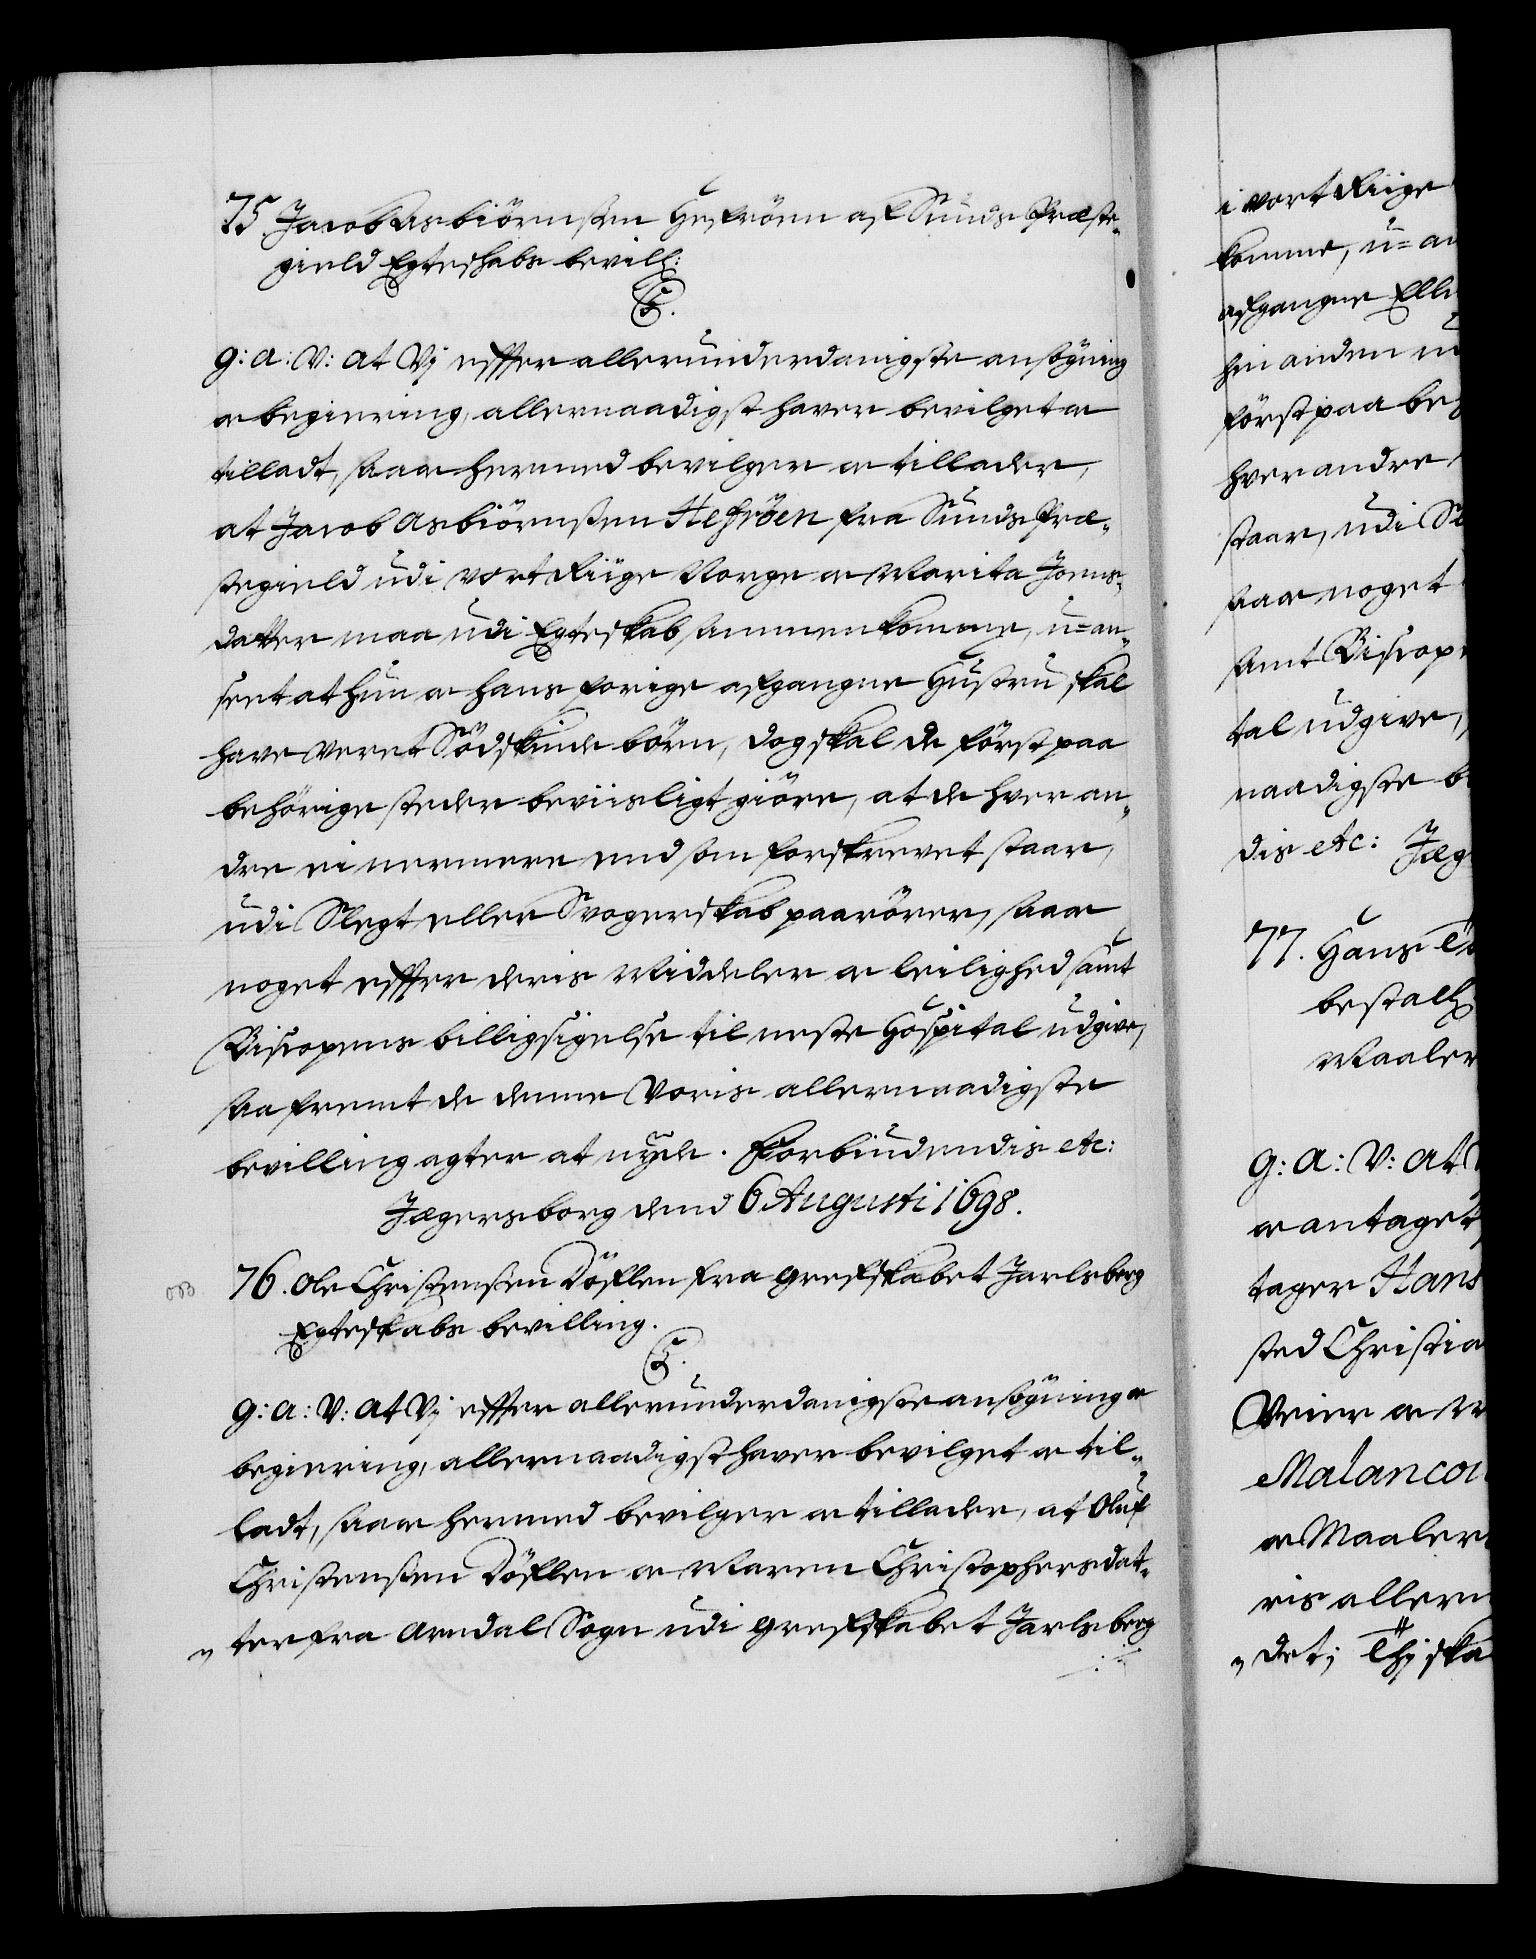 75. Jacob Asbiörnssen Hesröen af Sunds Præste-
gield Egteskabs bevill:
C5.
G: A: V: at Vj effter allerunderdanigste ansögning
oc begiering, allernaadigst haver bevilget oc
tilladt, saa oc hermed bevilger oc tillader,
at Jacob Asbiörnssen Hesröen fra Sunds Præ-
stegield udi vort Riige Norge oc Marita Joens-
datter maa udi Egteskab sammenkomme, u=an-
seet at hun oc hans forige afgangne Hustru skal
have veret Södskinde börn, dog skal de först paa
behörige steder beviisligt giöre, at de hver an-
dre ei nermere end som forskrevet staar,
udi Slegt eller Svogerskab paarörer, saa oc
noget effter deris Middeler oc leilighed samt
Biscopens billigsigelse til neste Hospital udgive,
saa fremt de denne Voris allernaadigste
bevilling agter at nyde. Forbiudendis etc:
Jægersborg dend 6 Augusti 1698.
76. Ole Christenssen Döflen fra Grefskabet Jarlsberg
Egteskabs bevilling.
C5.
G: A: V: at Vj effter allerunderdanigste ansögning oc
begiering, allernaadigst haver bevilget oc til-
ladt, saa oc hermed bevilger oc tillader, at Oluf
Christenssen Döflen oc Maren Christophersdat-
ter fra Arndal Sogn udi Grefskabet Jarlsberg
i vort Riige
komme, u=an
afgangne Elle
hin anden
först paa be
hver andre
staar, udi
saa oc noget
samt Biscope
tal udgive,
naadigste be
dis etc: Jæg
77. Hans
bestall
Maaler
G: A: V: at
oc antaget
tager Hans
sted Christia
Veier oc
Malancou
oc Maaler
ris allern
det; Thj ska